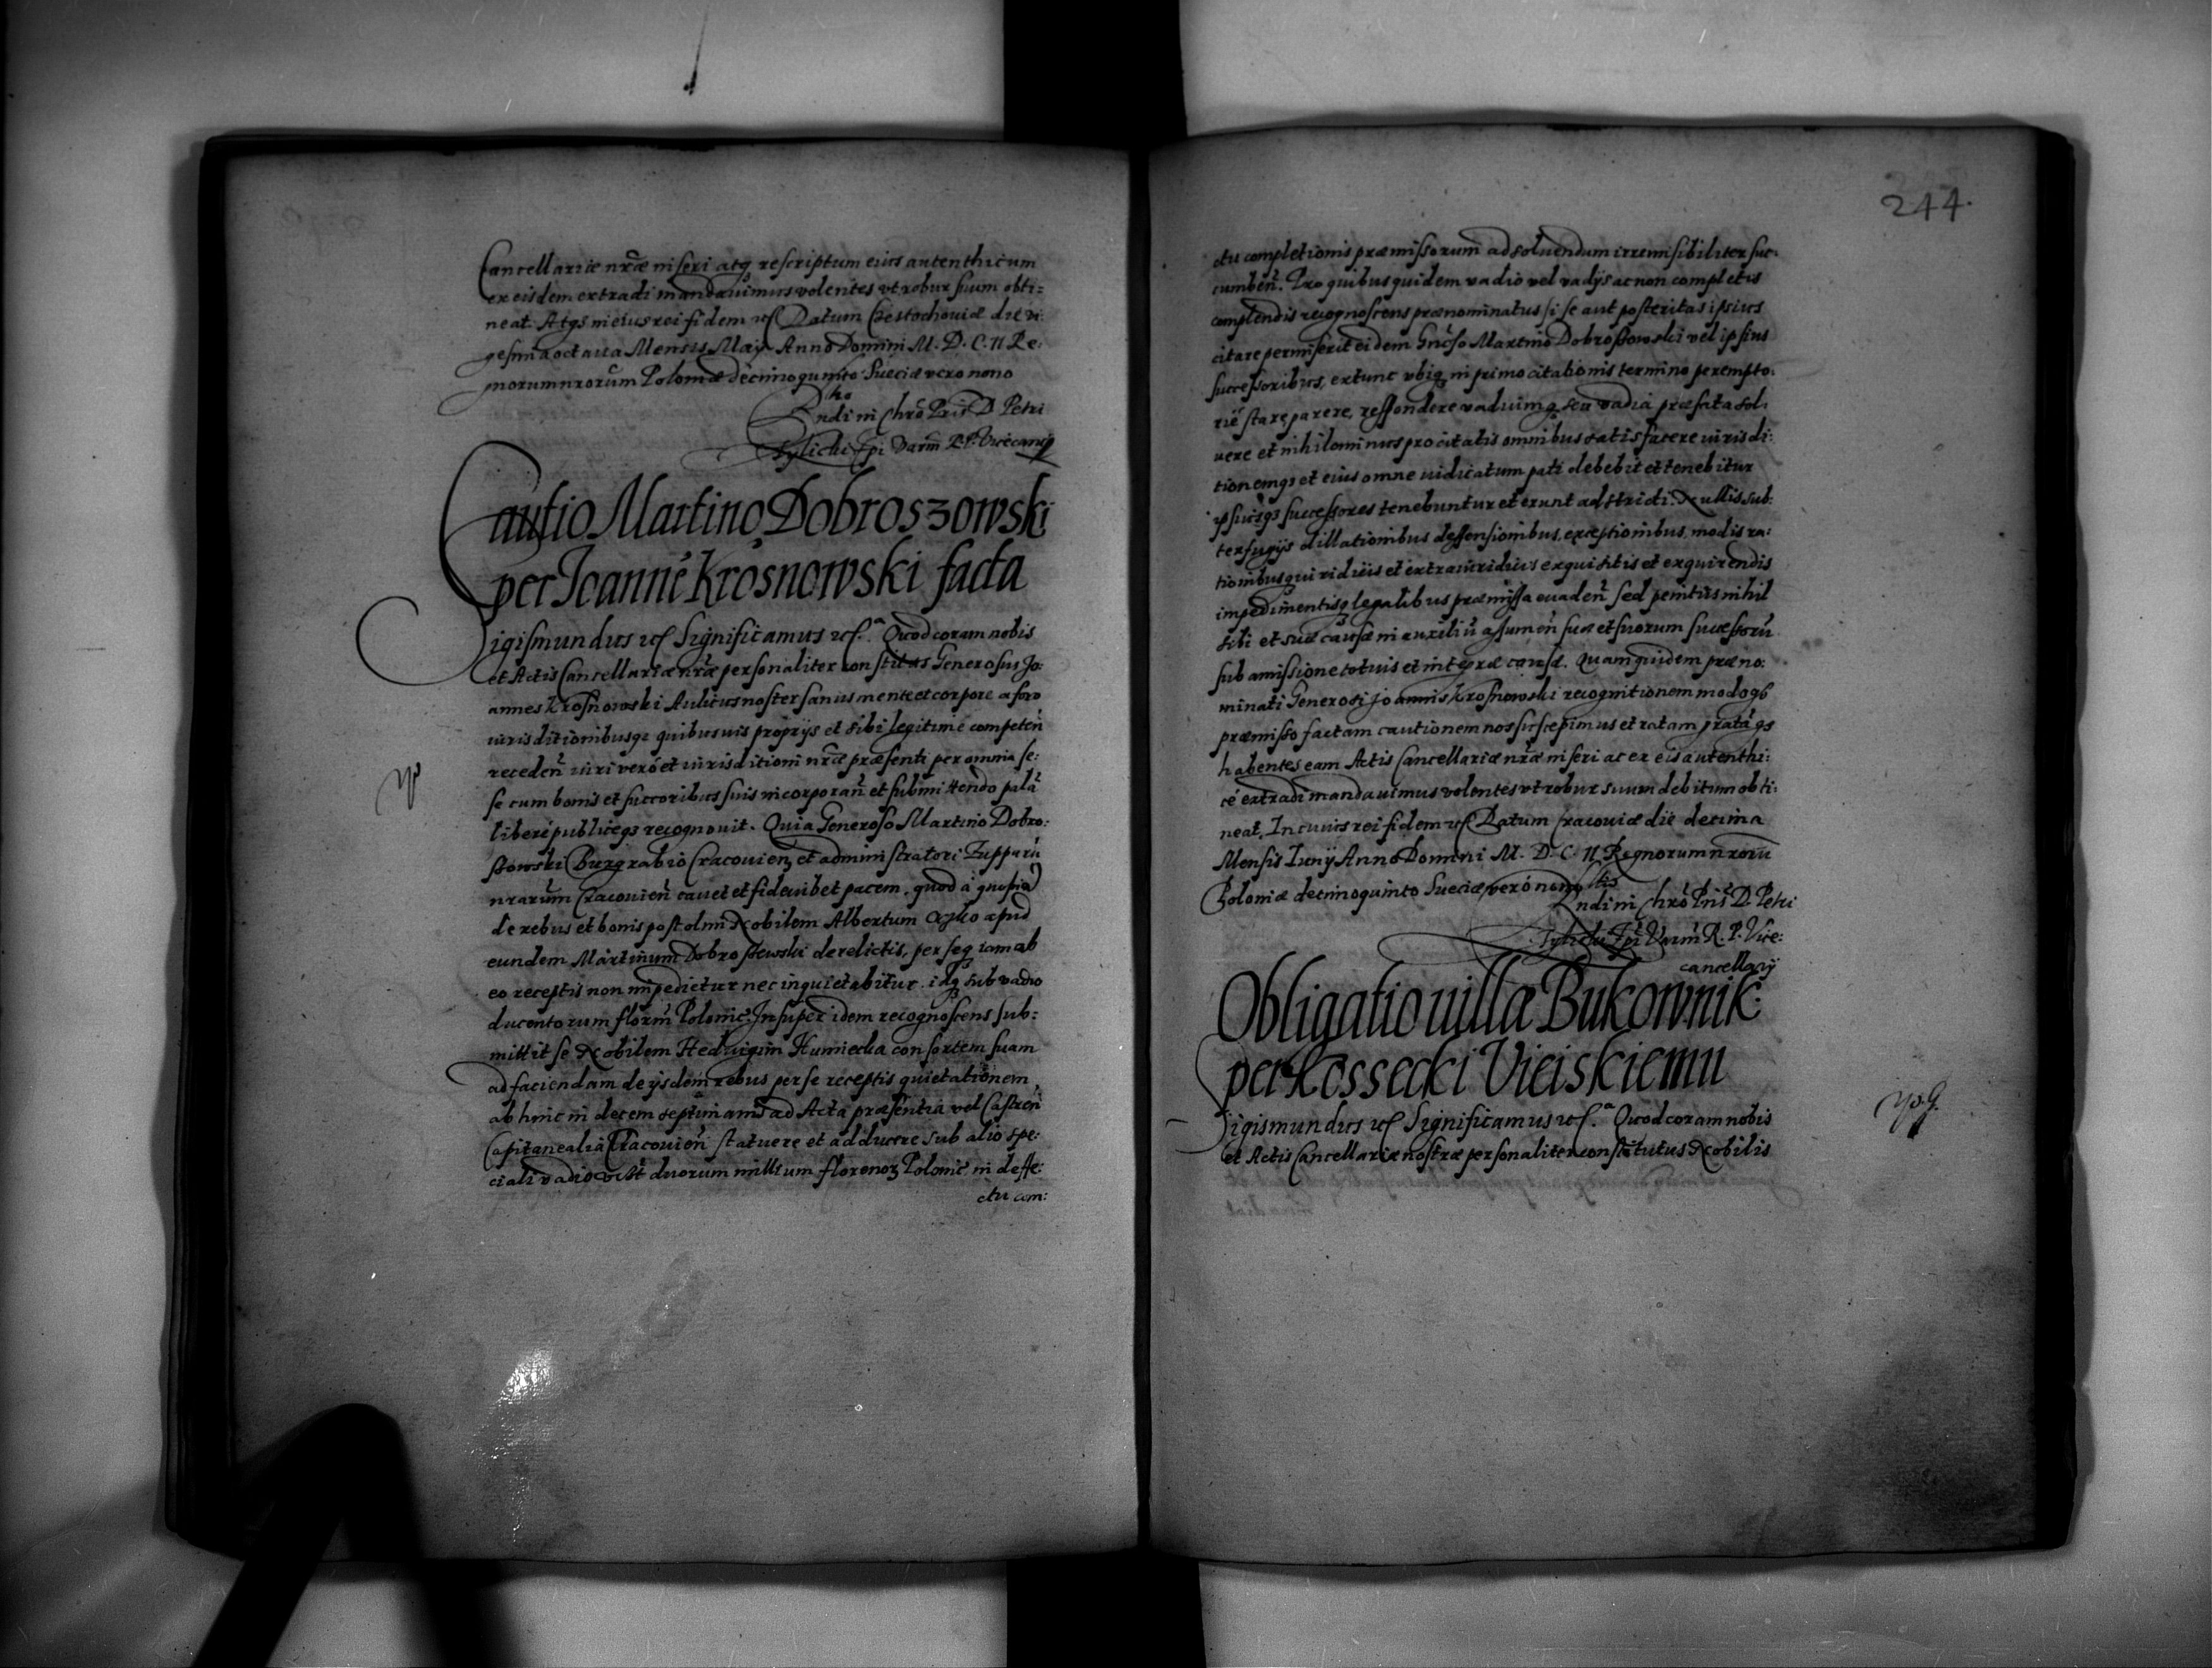 Cancellariæ nr̃æ inseri atq rescriptum eius autenthicum
ex eisdem extradi mandauimus volentes vt robur suum obti=
neat. Atqs in eius rei fidem etc Datum Czestochouiæ die vi
gesima octaua Mensis Maÿ Anno Domini M. D. C. II Re:
gnorum nrorum Poloniæ decimoquinto Sueciæ vero nono
Rndi in Chro Pris D. Petri
Tylicki Epi Varm R. P. Vicecanc
Cautio Martino Dobroszowski
per Joannē Krosnowski facta
Sigismundus etc Significamus etc.ª Quod coram nobis
et Actis Cancellariæ nr̃æ personaliter constitus Generosus Jo:
annes Krosnowski Aulicus noster sanus mente et corpore a foro
iurisditionibusqs quibusuis proprÿs et sibi legitime competeñ
recedeñ iuri veró et iurisditioni nr̃æ præsenti per omnia se:
se cum bonis et succoribus suis incorporañ et submittendo palā
liberé publiceqs recognouit. Quia Generoso Martino Dobro:
ssowski Burgrabio Cracouien et administratori Zupparū
nrarum Cracouieñ cauet et fideiubet pacem, quod a gnosia
de rebus et bonis post olim Nobilem Albertum apud
eundem Martinum Dobrossewski derelictis, per seq iam ab
eo receptis non impedietur nec inquietabitur. idq sub vadio
ducentorum florm̃ Polonic. Insuper idem recognoscens sub:
mittit se Nobilem Heduigim Humiecka consortem suam
ad faciendam de ÿsdem rebus per se receptis quietationem,
ab hinc in decem septimanis ad Acta præsentia vel Castreñ
Capitanealia Cracouieñ statuere et adducere sub alio spe:
ciali vadio duorum millium florenoꝝ Polonic in deffe:
ctu com:
244.
ctu completionis præmissorum ad soluendum irremisibiliter suc:
cumbeñ. Pro quibus quidem vadio vel vadÿs ac non completis
complendis recognoscens prænominatus si se aut posteritas ipsius
citare permiserit eidem Gnoso Martino Dobrossowski vel ipsius
successoribus, extunc vbiq in primo citationis termino perempto:
rié stare parere, respondere vadiumq seu vadia præfata sol:
uere et nihilominus pro citatis omnibus satisfacere iurisdi:
tionemqs et eius omne iudicatum pati debebit et tenebitur
ipsiusqs successores tenebuntur et erunt adstricti. Nullis sub:
terfugÿs dillationibus deffensionibus, exceptionibus, modis ra:
tionibusq iuridicis et extraiuridicis exquisitis et exquirendis
impedimentisq legalibus præmissa euadeñ sed penitus nihil
sibi et suæ causæ in auxiliū assumeñ suæ et suorum successorū
sub amissione totius et integræ causæ. Quam quidem præno:
minati Generosi Joannis Krosnowski recognitionem modoqs
præmisso factam cautionem nos suscepimus et ratam gratāqs
habentes eam Actis Cancellariæ nr̃æ inseri ac ex eis autenthi:
cé extradi mandauimus volentes vt robur suum debitum obti:
neat. In cuius rei fidem etc Datum Cracouiæ die decima
Mensis Iunÿ Anno Domini M. D. C. II Regnorum nrorū
Poloniæ decimoquinto Sueciæ veró nono
Rndi in Chrō Pris D. Petri
Tylicki Epi Varm̃ R. P. Vice:
cancellarÿ
Obligatio uillæ Bukownik
per Kossecki Vieiskiemu
Sigismundus etc Significamus etc.ª Quod coram nobis
et Actis Cancellariæ nostræ personaliter constitutus Nobilis